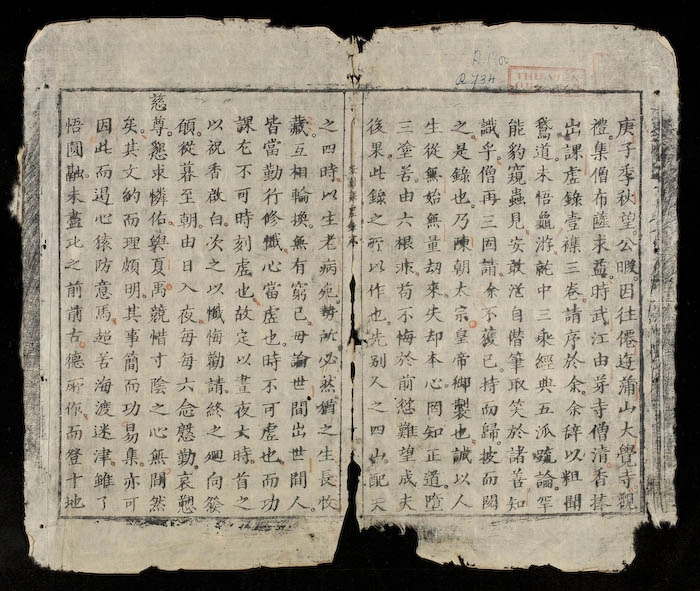 R.1400
R.734
THƯ VIỆN
庚子季秋望公暇因往僊遊蒲山大覺寺觀
禮集僧布薩求益時武江由芽寺僧清香捧
出課虛錄壹襟三卷請序於余余辭以粗聞
鷲道未悟龜游就中三乘經典五派疏論罕
能豹窺蟲見安敢濫自僭筆取笑於諸善知
識乎僧再三固請余不獲已持而歸披而閱
之是錄也乃陳朝太宗皇帝御製也誠以人
生從無始無量劫來失却本心罔知正道墮
三塗苦由六根苟不悔於前愆難望成夫
後果此錄之所以作也先別人之四山配天
之四時以生老病死勢所必然猶之生長收
藏互相輪換無有窮已毋論世間出世間人
皆當勤行修懺心當虛也時不可虛也而功
課在不可時刻虛也故定以晝夜六時首之
以祝香啟白次之以懺悔勸請終之迴向發
願從暮至朝由日入夜每每六念慇勤哀懇
慈尊懇求憐佑與夏禹競惜寸陰之心無間然
矣其文約而理頗明其事簡而功易集亦可
因此而遏心猿防意馬超苦海渡迷津雖了
悟圓融未盡此之前前古德所作而登十地